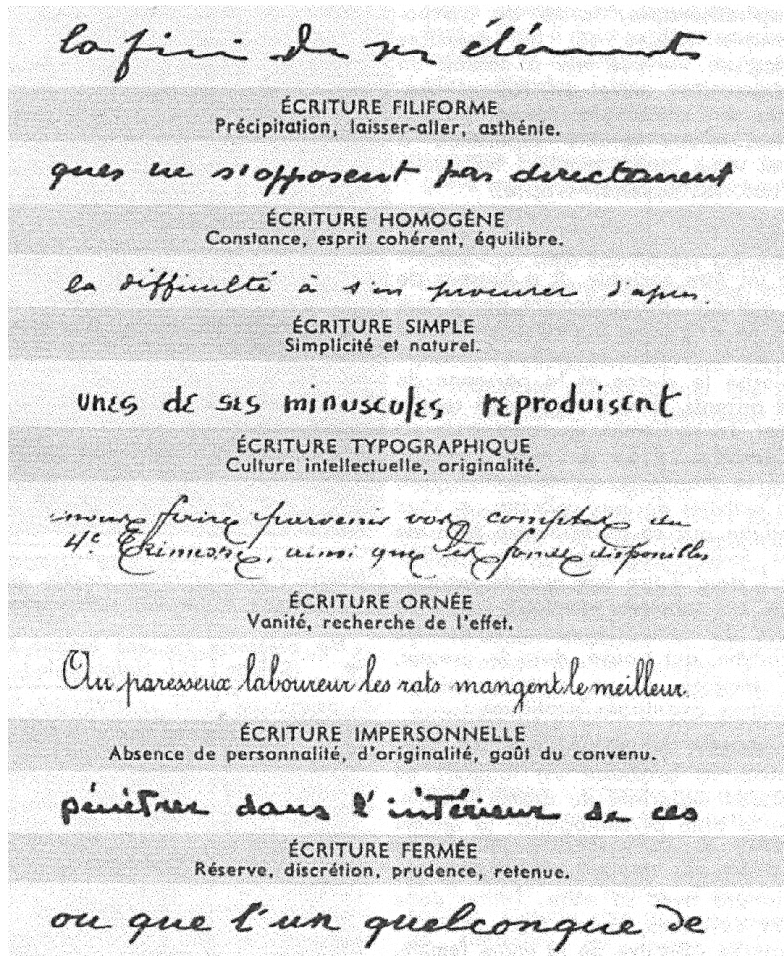 la fini de ses éléments
ÉCRITURE FILIFORME
Précipitation, laisser-aller, asthénie.
ques ne s'opposent pas directement
ÉCRITURE HOMOGÈNE
Constance, esprit cohérent, équilibre.
la difficulté à s'en procurer d'apres.
ÉCRITURE SIMPLE
Simplicité et naturel.
unes de ses minuscules reproduisent
ÉCRITURE TYPOGRAPHIQUE
Culture intellectuelle, originalité.
nous faire parvenir vos comptes du
4e Trimestre, ainsi que les fonds disponibles
ÉCRITURE ORNÉE
Vanité, recherche de l'effet.
Au paresseux laboureur les rats mangent le meilleur.
ÉCRITURE IMPERSONNELLE
Absence de personnalité, d'originalité, goût du convenu.
pénétrer dans l'intérieur de ces
ÉCRITURE FERMÉE
Réserve, discrétion, prudence, retenue.
ou que l'un quelconque de